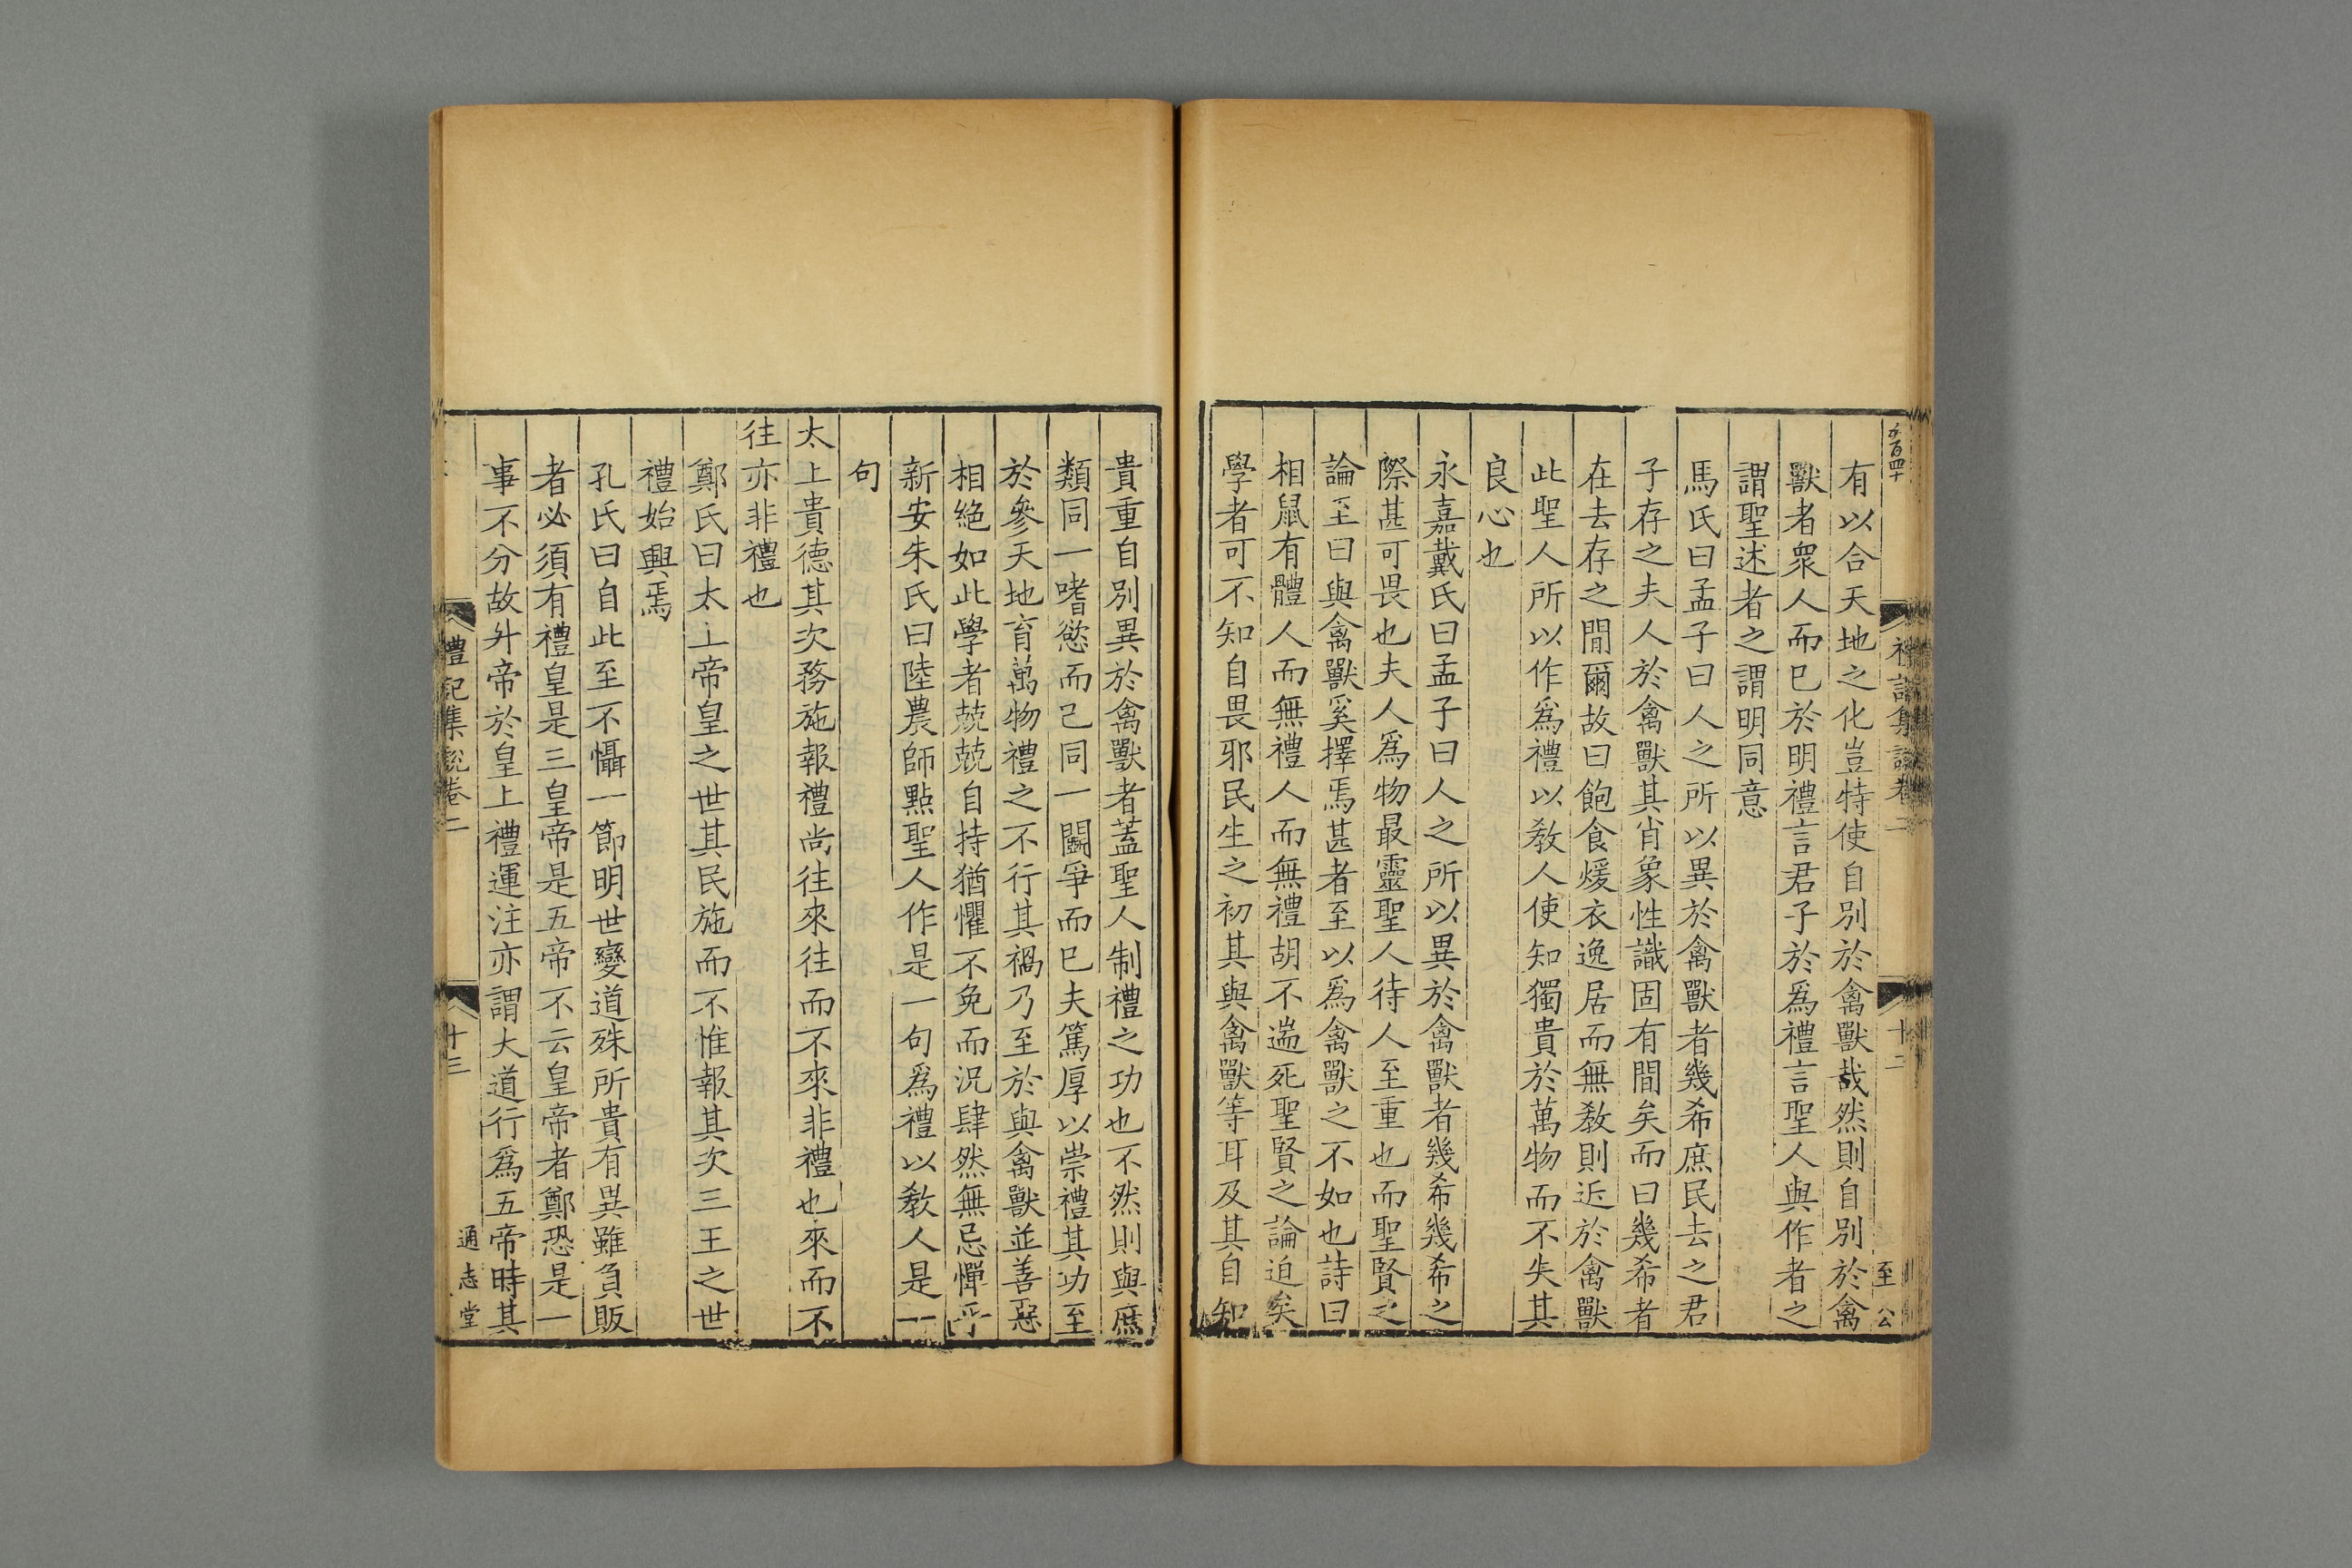 五百四十
禮記集說卷二
十二
至公
有以合天地之化豈特使自別於禽獸哉然則自別於禽
獸者衆人而已於明禮言君子於爲禮言聖人與作者之
謂聖述者之謂明同意
馬氏曰孟子曰人之所以異於禽獸者幾希庶民去之君
子存之夫人於禽獸其肖象性識固有間矣而曰幾希者
在去存之間爾故曰飽食煖衣逸居而無敎則近於禽獸
此聖人所以作爲禮以敎人使知獨貴於萬物而不失其
良心也
永嘉戴氏曰孟子曰人之所以異於禽獸者幾希幾希之
際甚可畏也夫人爲物最靈聖人待人至重也而聖賢之
論至曰與禽獸奚擇焉甚者至以爲禽獸之不如也詩曰
相鼠有體人而無禮人而無禮胡不遄死聖賢之論迫矣
學者可不知自畏邪民生之初其與禽獸等耳及其自知
貴重自別異於禽獸者蓋聖人制禮之功也不然則與庶
類同一嗜慾而己同一鬭爭而已夫篤厚以崇禮其功至
於參天地育萬物禮之不行其禍乃至於與禽獸並善惡
相絶如此學者兢兢自持猶懼不免而況肆然無忌憚乎
新安朱氏曰陸農師點聖人作是一句爲禮以敎人是一
句
太上貴德其次務施報禮尚往來往而不來非禮也來而不
往亦非禮也
鄭氏曰太上帝皇之世其民施而不惟報其次三王之世
禮始興焉
孔氏曰自此至不懾一節明世變道殊所貴有異雖負販
者必須有禮皇是三皇帝是五帝不云皇帝者鄭恐是一
事不分故升帝於皇上禮運注亦謂大道行爲五帝時其
禮記集說卷二
十三
通志堂